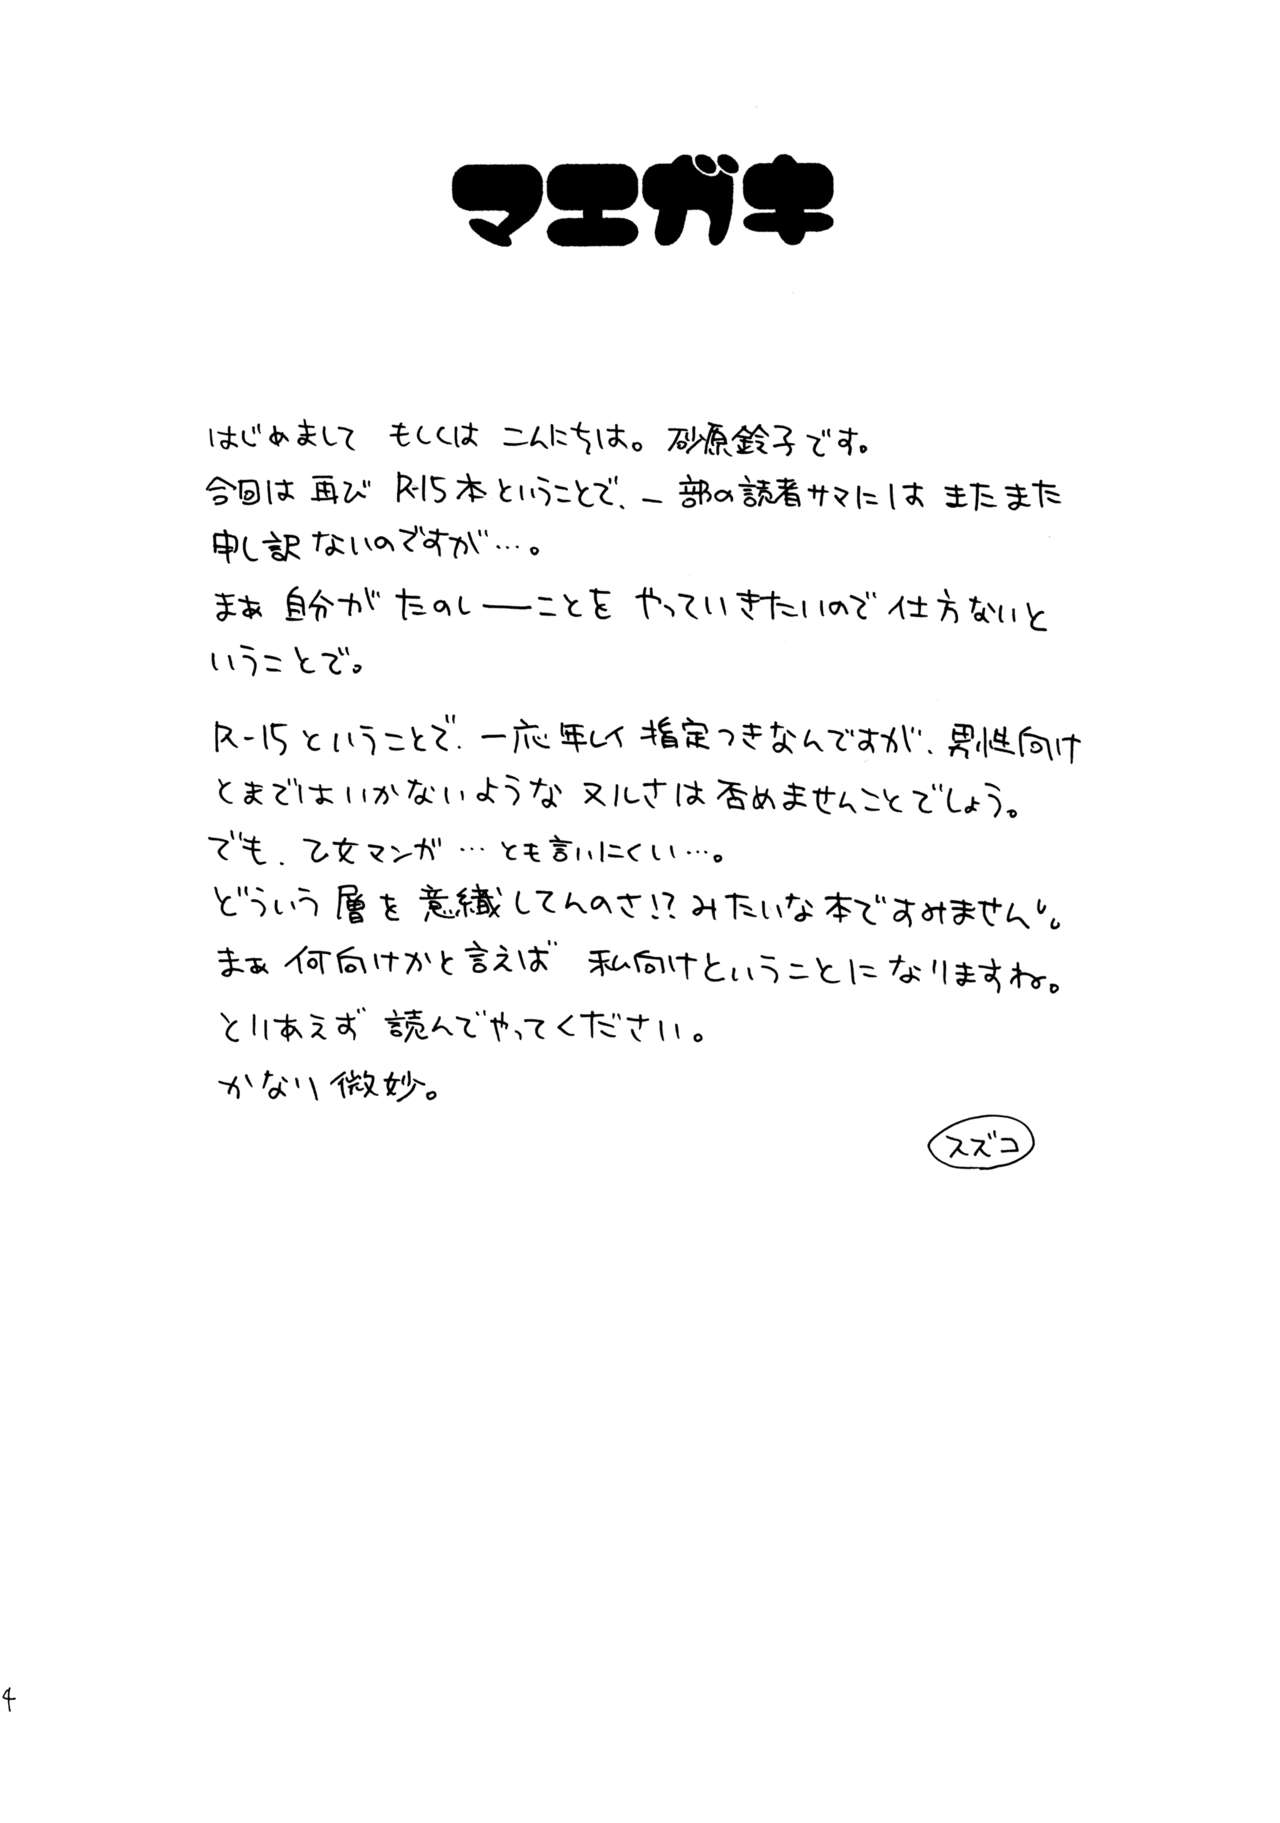 マエガキ
はじめまして もしくは こんにちは。 砂原鈴子です。
今回は 再び R-15本ということで、一部の読者サマには またまた
申し訳ないのですが…。
まぁ 自分が たのしーーことを やっていきたいので 仕方ないと
いうことで。
R-15ということで、一応年レイ指定つきなんですが、男性向け
とまではいかないような ヌルさは否めませんことでしょう。
でも、乙女マンガ…とも言いにくい…。
どういう層を意識してんのさ!?みたいな本ですみません。
まぁ 何向けかと言えば 私向けということになりますね。
とりあえず 読んでやってください。
かなり微妙。
スズコ
4